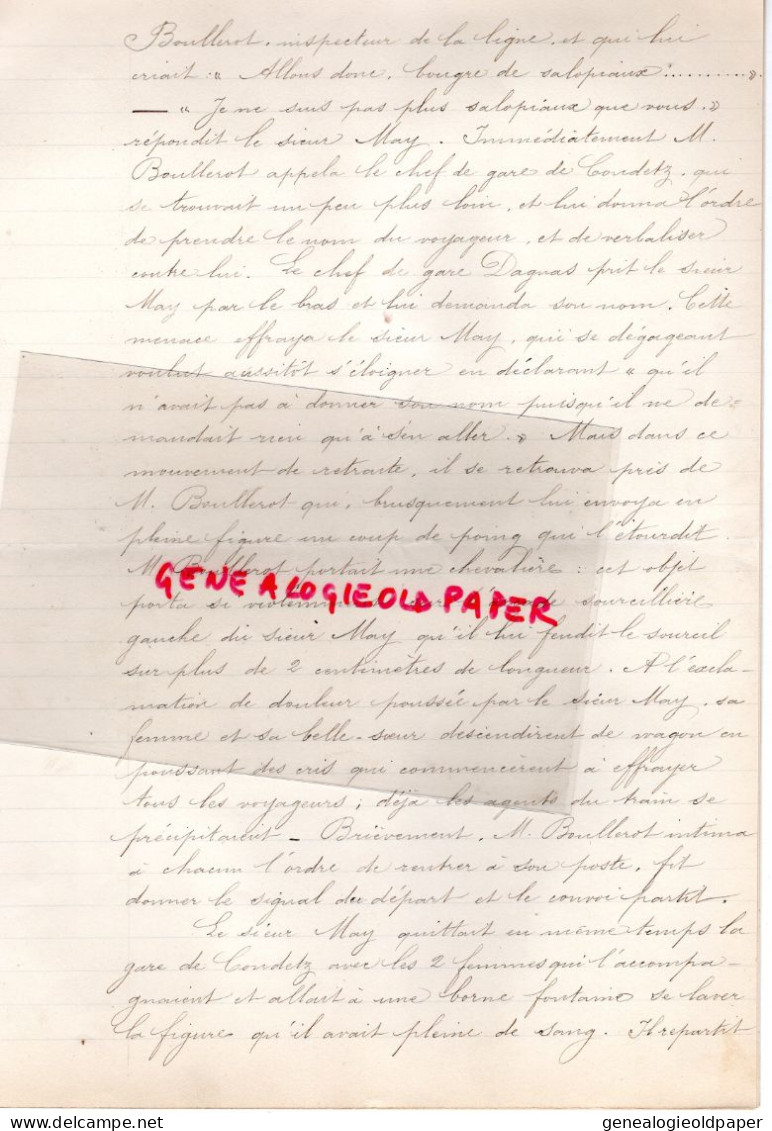 Boullerot, inspecteur de la ligne, et qui lui
criait : « Allons donc, bougre de salopiaux !.......... ».
— « Je ne suis pas plus salopiaux que vous. »
répondit le sieur May. Immédiatement M.
Boullerot appela le chef de gare de Coudetz, qui
se trouvait un peu plus loin, et lui donna l'ordre
de prendre le nom du voyageur, et de verbaliser
contre lui. Le chef de gare Dagnas prit le sieur
May par le bras et lui demanda son nom. Cette
menace effraya le sieur May, qui se dégageant
voulut aussitôt s'éloigner en déclarant « qu'il
n'avait pas à donner son nom puisqu'il ne de-
mandait rien qu'à s'en aller. » Mais dans ce
mouvement de retraite, il se retrouva près de
M. Boullerot qui, brusquement lui envoya en
pleine figure un coup de poing qui l'étourdit.
M. Boullerot portait une chevalière : cet objet
GENEALOGIEOLDPAPER
porta si violemment sur sourcilière
gauche du sieur May qu'il lui fendit le sourcil
sur plus de 2 centimètres de longueur. A l'excla-
mation de douleur poussée par le sieur May, sa
femme et sa belle-sœur descendirent de wagon en
poussant des cris qui commencèrent à effrayer
tous les voyageurs ; déjà les agents du train se
précipitaient — Brièvement, M. Boullerot intima
à chacun l'ordre de rentrer à son poste, fit
donner le signal du départ et le convoi partit.
Le sieur May quittait en même temps la
gare de Coudetz avec les 2 femmes qui l'accompa-
gnaient et allait à une borne fontaine se laver
la figure qu'il avait pleine de sang. Il repartit
genealogieoldpaper